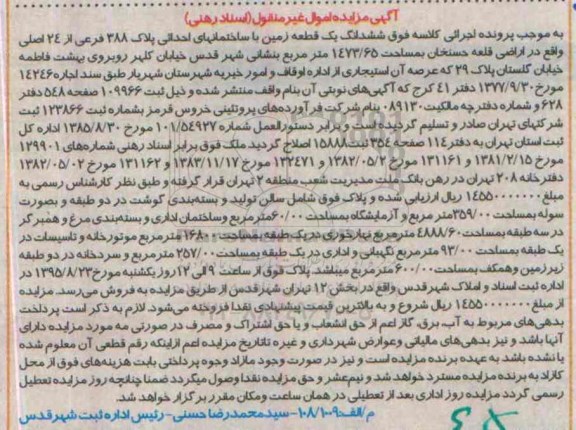 آگهی مزایده اموال غیر منقول (اسناد رهنی)
به موجب پرونده اجرائی کلاسه فوق ششدانگ یک قطعه زمین با ساختمانهای احداثی پلاک ۳۸۸ فرعی از ۲۴ اصلی
واقع در اراضی قلعه حسنخان بمساحت ۱۴۷۳/۶۵ متر مربع بنشانی شهر قدس خیابان کلهر روبروی بهشت فاطمه
خیابان گلستان پلاک ۲۹ که عرصه آن استیجاری از اداره اوقاف و امور خیریه شهرستان شهریار طبق سند اجاره ۱۴۲۴۶
مورخ ۱۳۷۷/۹/۳۰ دفتر ۴۱ کرج که آگهی‌های نوبتی آن بنام واقف منتشر شده و ذیل ثبت ۱۰۹۹۶۶ صفحه ۵۴۸ دفتر
۶۲۸ و شماره دفترچه مالکیت ۰۸۹۱۳۰ بنام شرکت فرآورده‌های پروتئینی خروس قرمز بشماره ثبت ۱۲۳۸۶۶ ثبت
شرکتهای تهران صادر و تسلیم گردیده است و برابر دستورالعمل شماره ۱۰۱/۵۴۹۲۷ مورخ ۱۳۸۵/۸/۳۰ اداره کل
ثبت استان تهران به دفتر ۱۱۴ صفحه ۳۵۴ ثبت ۱۵۸۸۸ اصلاح گردید ملک فوق برابر اسناد رهنی شماره‌های ۱۲۹۹۰۱
مورخ ۱۳۸۱/۲/۱۵ و ۱۳۱۱۶۱ مورخ ۱۳۸۲/۰۵/۲ و ۱۳۲۴۷۱ مورخ ۱۳۸۳/۱۱/۱۷ و ۱۳۱۱۶۲ مورخ ۱۳۸۲/۰۵/۰۲
دفترخانه ۲۰۸ تهران در رهن بانک ملت مدیریت شعب منطقه ۲ تهران قرار گرفته و طبق نظر کارشناس رسمی به
مبلغ ۱۴۵۵۰۰۰۰۰۰۰ ریال ارزیابی شده و پلاک فوق شامل سالن تولید و بسته‌بندی گوشت در دو طبقه و بصورت
سوله بمساحت ۳۵۹/۰۰ متر مربع و آزمایشگاه بمساحت ۶۰/۰۰ متر مربع و ساختمان اداری و بسته‌بندی مرغ و همبرگر
در سه طبقه بمساحت ۴۸۸۸/۶۰ متر مربع نهارخوری در یک طبقه بمساحت ۱۶۸۰۰ متر مربع موتورخانه و تاسیسات در
یک طبقه بمساحت ۹۳/۰۰ متر مربع نگهبانی و اداری در یک طبقه بمساحت ۲۵۷/۰۰ متر مربع و سردخانه در دو طبقه
زیرزمین و همکف بمساحت ۶۰۰/۰۰ متر مربع میباشد پلاک فوق از ساعت ۹ الی ۱۲ روز یکشنبه مورخ ۱۳۹۵/۸/۲۳ در
اداره ثبت اسناد و املاک شهر قدس واقع در بخش ۱۲ تهران شهر قدمن از طریق مزایده به فروش می‌رسد. مزایده
از مبلغ ۱۴۵۵۰۰۰۰۰۰۰ ریال شروع و به بالاترین قیمت پیشنهادی نقدا فروخته می‌شود. لازم به ذکر است پرداخت
بدهی‌های مربوط به آب، برق، گاز اعم از حق انشعاب و یا حق اشتراک و مصرف در صورتی مه مورد مزایده دارای
آنها باشد و نیز بدهی‌های مالیاتی و عوارض شهرداری و غیره تا تاریخ مزایده اعم از اینکه رقم قطعی آن معلوم شده
یا نشده باشد به عهده برنده مزایده است و نیز در صورت وجود مازاد وجوه پرداختی بابت هزینه‌های فوق از محل
مازاد به برنده مزایده مسترد خواهد شد و نیم‌عشر و حق مزایده نقدا وصول میگردد ضمنا چنانچه روز مزایده تعطیل
رسمی گردد مزایده روز اداری بعد از تعطیلی در همان ساعت و مکان مقرر برگزار خواهد شد.
م/الف: ۱۰۸/۱۰۰۹ - سید محمدرضا حسنی - رئیس اداره ثبت شهر قدس